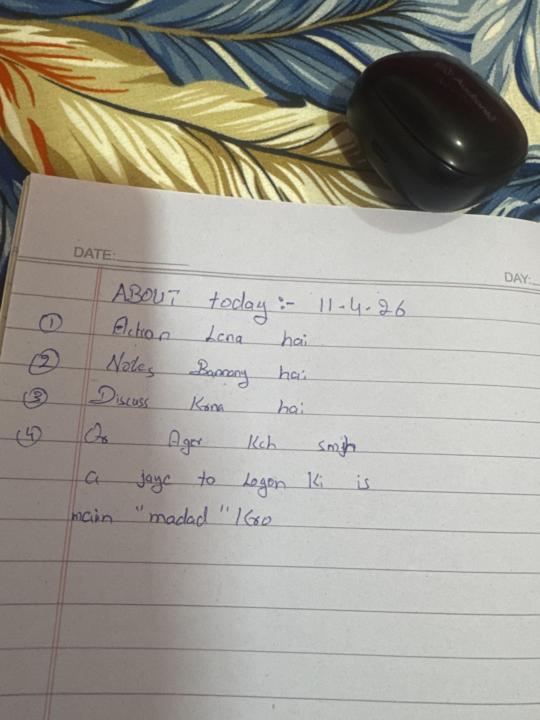 DATE:
DAY:
ABOUT today :- 11-4-26
① Action Lena hai
② Notes Banany hai
③ Discuss Krna hai
④ Or Ager Kch smjh
a jaye to Logon Ki is
main "madad" Kro